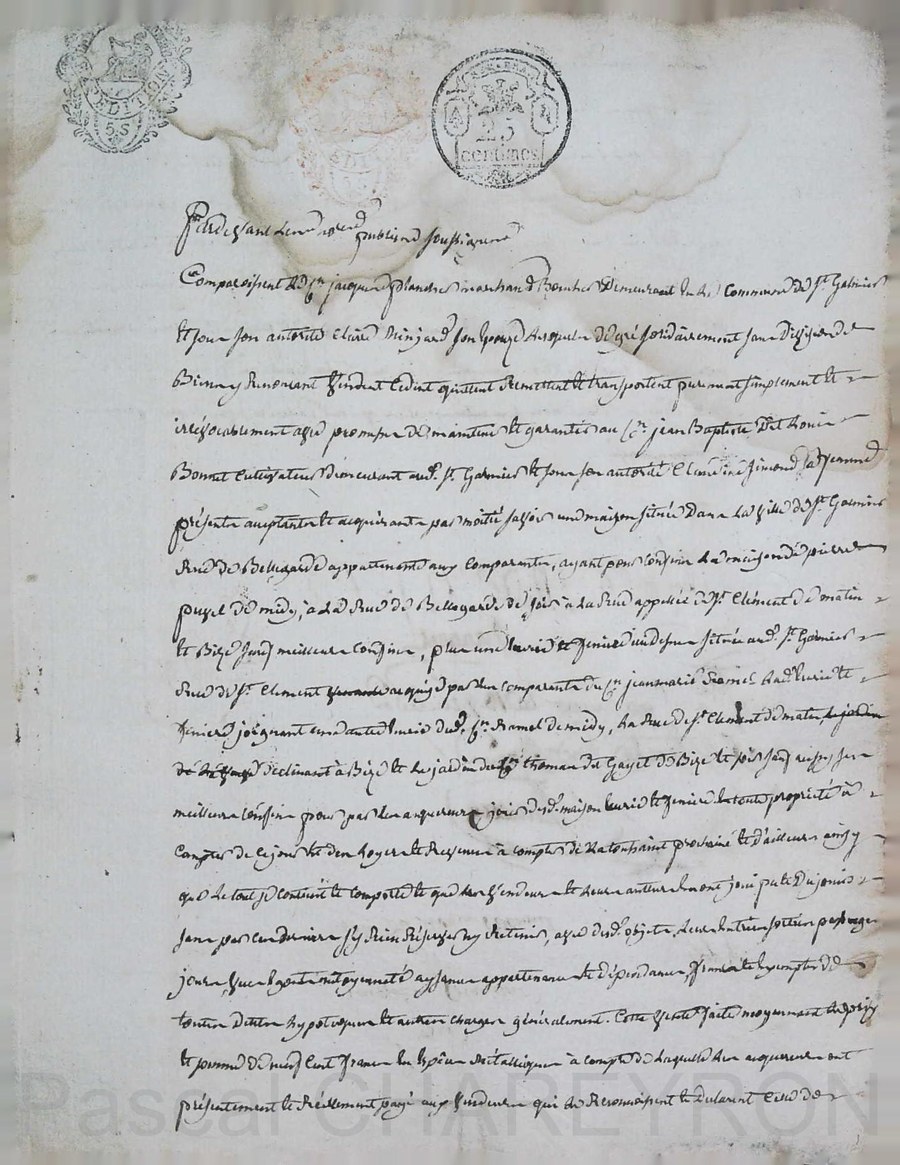 EXPÉDITION
5S
25
centimes
Pardevant les no.res publics soussignés
Comparaissent le C.en jacques planches marchand Boucher Demeurant en la Commune de St. Galmier
Et sous son autorité Claire Minjard son Epouze lesquels de gré solidairement sans Division de
Biens y Renonçant Vendent Cedent quittent Remettent et transportent purement simplement et
irrévocablement avec promesse de maintenir et garantir au C.en jean Baptiste
Bonnet Cultivateur Demeurant aud. St. Galmier et sous son autorité Claudine Simond sa femme
présente acceptante et acquérante par moitié savoir une maison située Dans la Ville de St. Galmier
Rue de Bellegarde appartenant aux Comparants, ayant pour Confins la maison de pierre
puzel de midy, à la Rue de Bellegarde de soir à la Rue appellée de St. Clément de matin
et Bize sauf meilleurs Confins, plus une Ecurie et feniere au dessus située aud. St. Galmier
Rue de St. Clement acquise par les comparants du C.en jeanmarie Ramel lad. Ecurie et
feniere joignant Ecurie dud. C.en Ramel de midy, la Rue de St. Clément de matin
declinant à Bize et le jardin du C.en thomas du Gayet de Bize et soir sauf
meilleurs Confins pour par les acquereurs jouir desd. maison Ecurie et feniere en toute propriété à
Compter de ce jour et des loyers et Revenus à compter de la toussaint prochaine et d'ailleurs ainsy
que le tout se contient et comporte et que les Vendeurs et leurs auteurs en ont joui pu et Du jouir
sans par ces derniers s'y Rien Réserver ny Retenir, avec desd. objets, leurs Entrées sorties passages
jours, Vues Egouts mitoyenneté aysances appartenances et dépendances, francs et Exempts de
toutes dettes hypotèques et autres charges généralement. Cette Vente faite moyennant le prix
et somme de neuf Cent francs en Espèces métalliques à compte de laquelle les acquereurs ont
présentement et Réellement payé aux Vendeurs qui le Reconnoissent et declarent Celle de
Pascal CHAREYRON